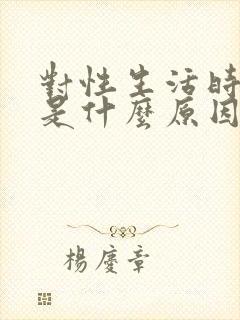 對性生活時
是什麼原因
楊慶章